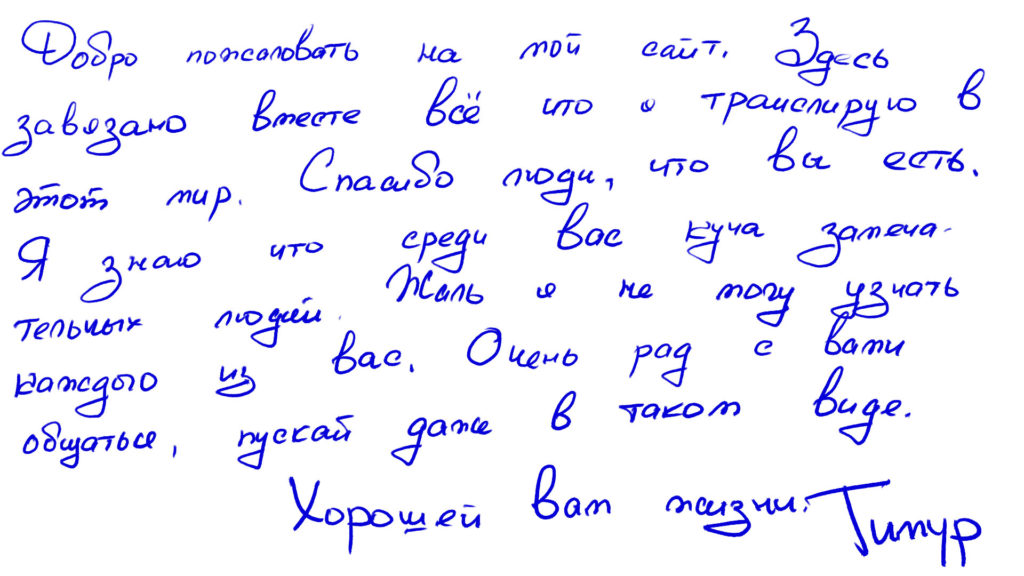 Добро пожаловать на мой сайт. Здесь
завязано вместе всё что я транслирую в
этот мир. Спасибо люди, что вы есть.
Я знаю что среди вас куча замеча-
тельных людей. Жаль я не могу узнать
каждого из вас. Очень рад с вами
общаться, пускай даже в таком виде.
Хорошей вам жизни. Тимур